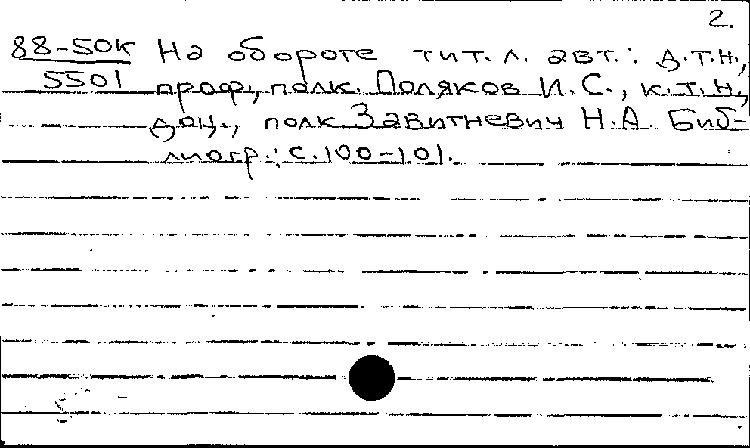 2.
88-50к На обороте тит. л. авт.: д.т.н.,
5501 проф., полк. Поляков И.С., к.т.н.,
доц., полк Завитневич Н.А. Биб-
лиогр.: с.100-101.